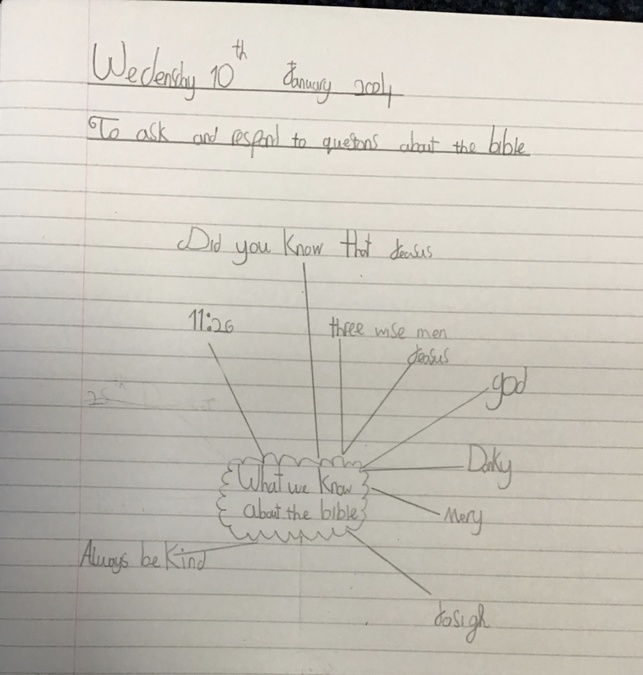 Wedensday 10th January 2024
To ask and respond to quetons about the bible
Did you know that Jeasus
11:26
three wise men
Jeasus
god
Donky
Mery
What we know
about the bible
Always be kind
Josigh